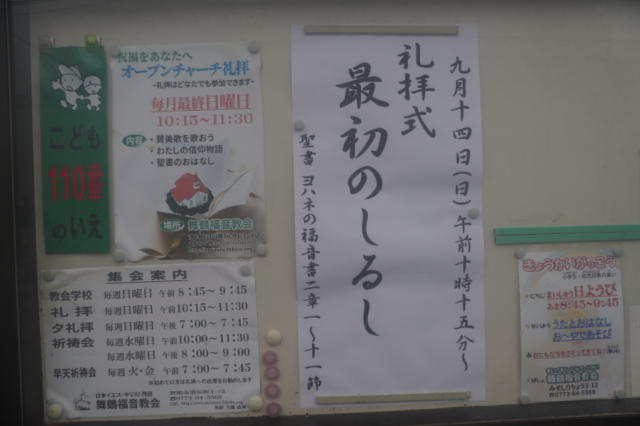 こども
110番
のいえ
祝福をあなたへ
オープンチャーチ礼拝
~礼拝はどなたでも参加できます~
毎月最終日曜日
10:15~11:30
内容
・賛美歌を歌おう
・わたしの信仰物語
・聖書のおはなし
場所
舞鶴福音教会
九月十四日(日)午前十時十五分~
礼拝式
最初のしるし
聖書 ヨハネの福音書二章一~十一節
集会案内
教会学校 毎週日曜日 午前 8:45~9:45
礼拝 毎週日曜日 午前10:15~11:30
夕礼拝 毎週日曜日 午後 7:00~7:45
祈祷会 毎週水曜日 午前10:00~11:30
毎週水曜日 午後 8:00~9:00
早天祈祷会 毎週火・金 午前 7:00~7:45
日本イエス・キリスト教団
舞鶴福音教会
0773-64-5568
きょうかいがっこう
まいしゅう日ようび
8:45~9:45
うたとおはなし
おへやであそび
舞鶴福音教会
0773-64-5568